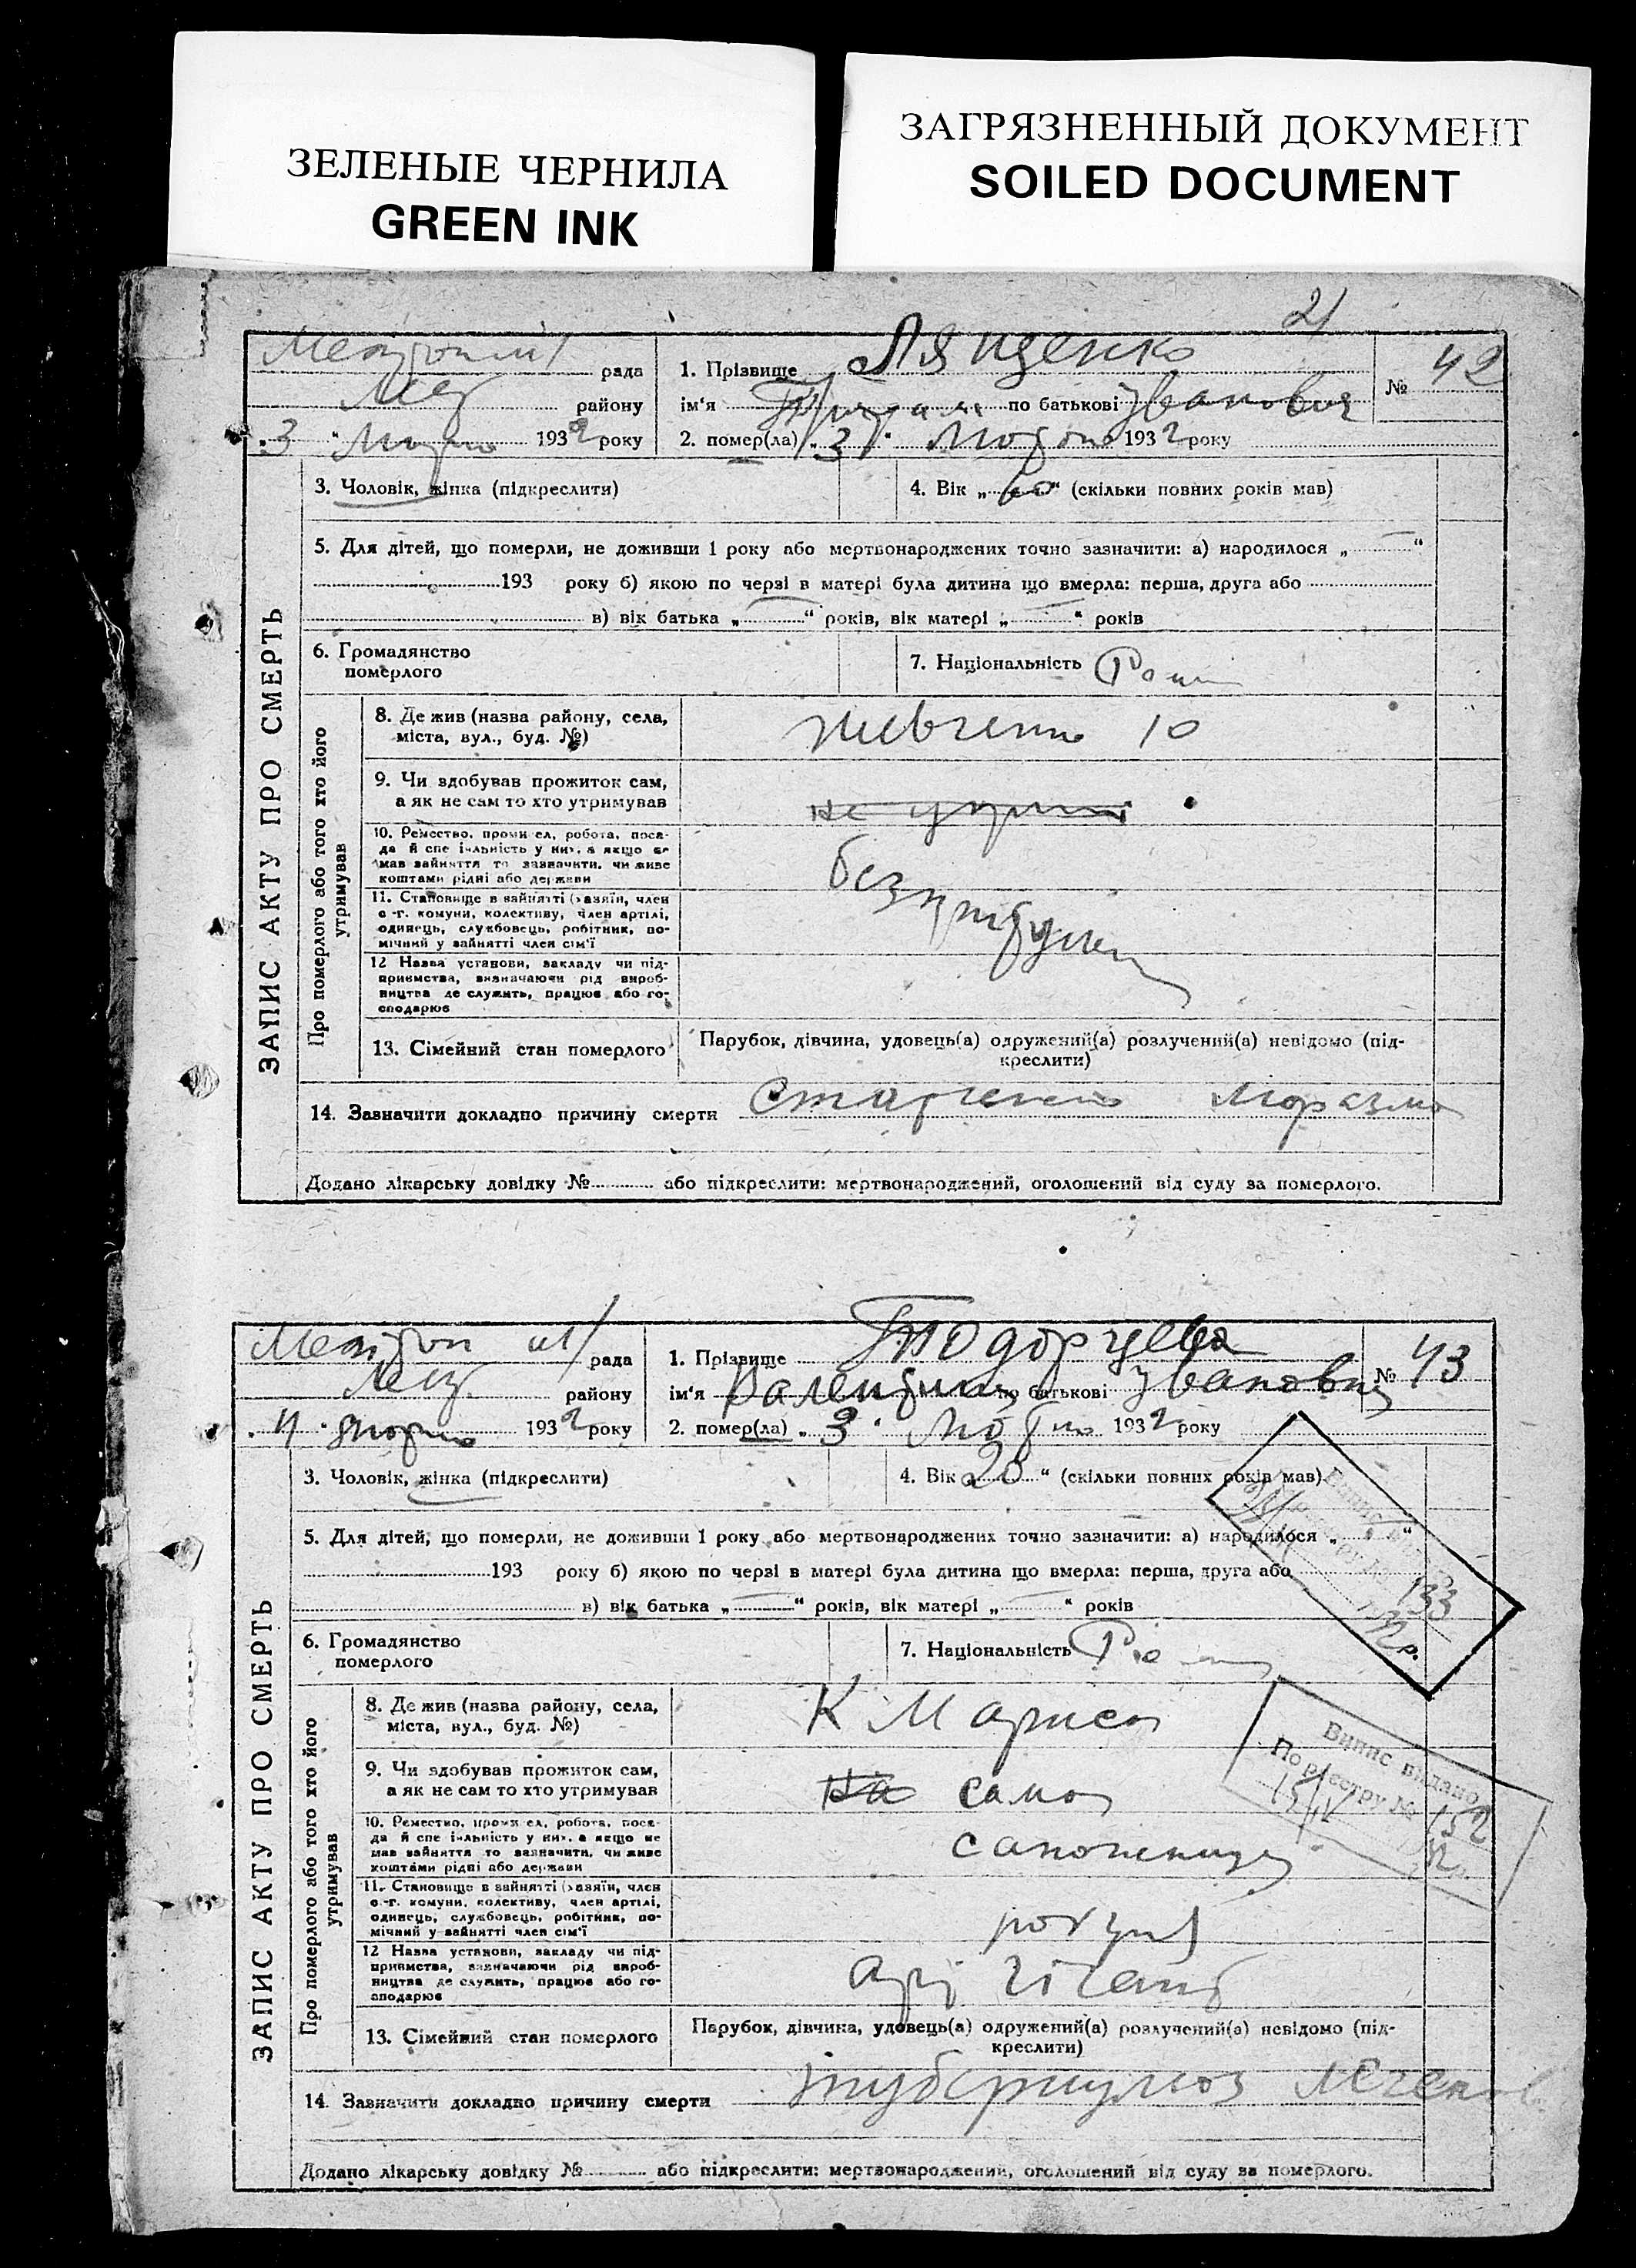 ЗЕЛЕНЫЕ ЧЕРНИЛА
GREEN INK
ЗАГРЯЗНЕННЫЙ ДОКУМЕНТ
SOILED DOCUMENT
21
ЗАПИС АКТУ ПРО СМЕРТЬ
рада
району
"3" 1932 року
1. Прізвище Лященко
ім'я по батькові Іванович
№ 42
2. помер(ла) "3" Лютого 1932 року
3. Чоловік, жінка (підкреслити)
4. Вік „60“ (скільки повних років мав)
5. Для дітей, що померли, не доживши 1 року або мертвонароджених точно зазначити: а) народилося „ “
193 року б) якою по черзі в матері була дитина що вмерла: перша, друга або
в) вік батька „ “ років, вік матері „ “ років
6. Громадянство
померлого
7. Національність
Про померлого або того хто його
утримував
8. Де жив (назва району, села,
міста, вул., буд. №)
Шевченко 10
9. Чи здобував прожиток сам,
а як не сам то хто утримував
10. Ремество, промисел, робота, поса-
да й спеціяльність у них, а якщо не
мав зайняття то зазначити, чи живе
коштами рідні або держави
11. Становище в зайнятті (хазяїн, член
с.-г. комуни, колективу, член артілі,
одинець, службовець, робітник, по-
мічний у зайнятті член сім'ї
12 Назва установи, закладу чи під-
приємства, визначаючи рід вироб-
ництва де служить, працює або го-
сподарює
13. Сімейний стан померлого
Парубок, дівчина, удовець(а) одружений(а) розлучений(а) невідомо (під-
креслити)
14. Зазначити докладно причину смерти
Додано лікарську довідку № або підкреслити: мертвонароджений, оголошений від суду за померлого.
ЗАПИС АКТУ ПРО СМЕРТЬ
рада
району
1932 року
1. Прізвище Тодорцева
ім'я Валентина по батькові Івановна
№ 43
2. помер(ла) „3“ Лютого 1932 року
3. Чоловік, жінка (підкреслити)
4. Вік „20“ (скільки повних років мав)
5. Для дітей, що померли, не доживши 1 року або мертвонароджених точно зазначити: а) народилося „ “
193 року б) якою по черзі в матері була дитина що вмерла: перша, друга або
в) вік батька „ “ років, вік матері „ “ років
133
6. Громадянство
померлого
7. Національність
Про померлого або того хто його
утримував
8. Де жив (назва району, села,
міста, вул., буд. №)
К Маркса
Випис видано
По реєстру № 152
9. Чи здобував прожиток сам,
а як не сам то хто утримував
на сама
10. Ремество, промисел, робота, поса-
да й спеціяльність у них, а якщо не
мав зайняття то зазначити, чи живе
коштами рідні або держави
11. Становище в зайнятті (хазяїн, член
с.-г. комуни, колективу, член артілі,
одинець, службовець, робітник, по-
мічний у зайнятті член сім'ї
12 Назва установи, закладу чи під-
приємства, визначаючи рід вироб-
ництва де служить, працює або го-
сподарює
13. Сімейний стан померлого
Парубок, дівчина, удовець(а) одружений(а) розлучений(а) невідомо (під-
креслити)
14. Зазначити докладно причину смерти туберкульоз легенів
Додано лікарську довідку № або підкреслити: мертвонароджений, оголошений від суду за померлого.